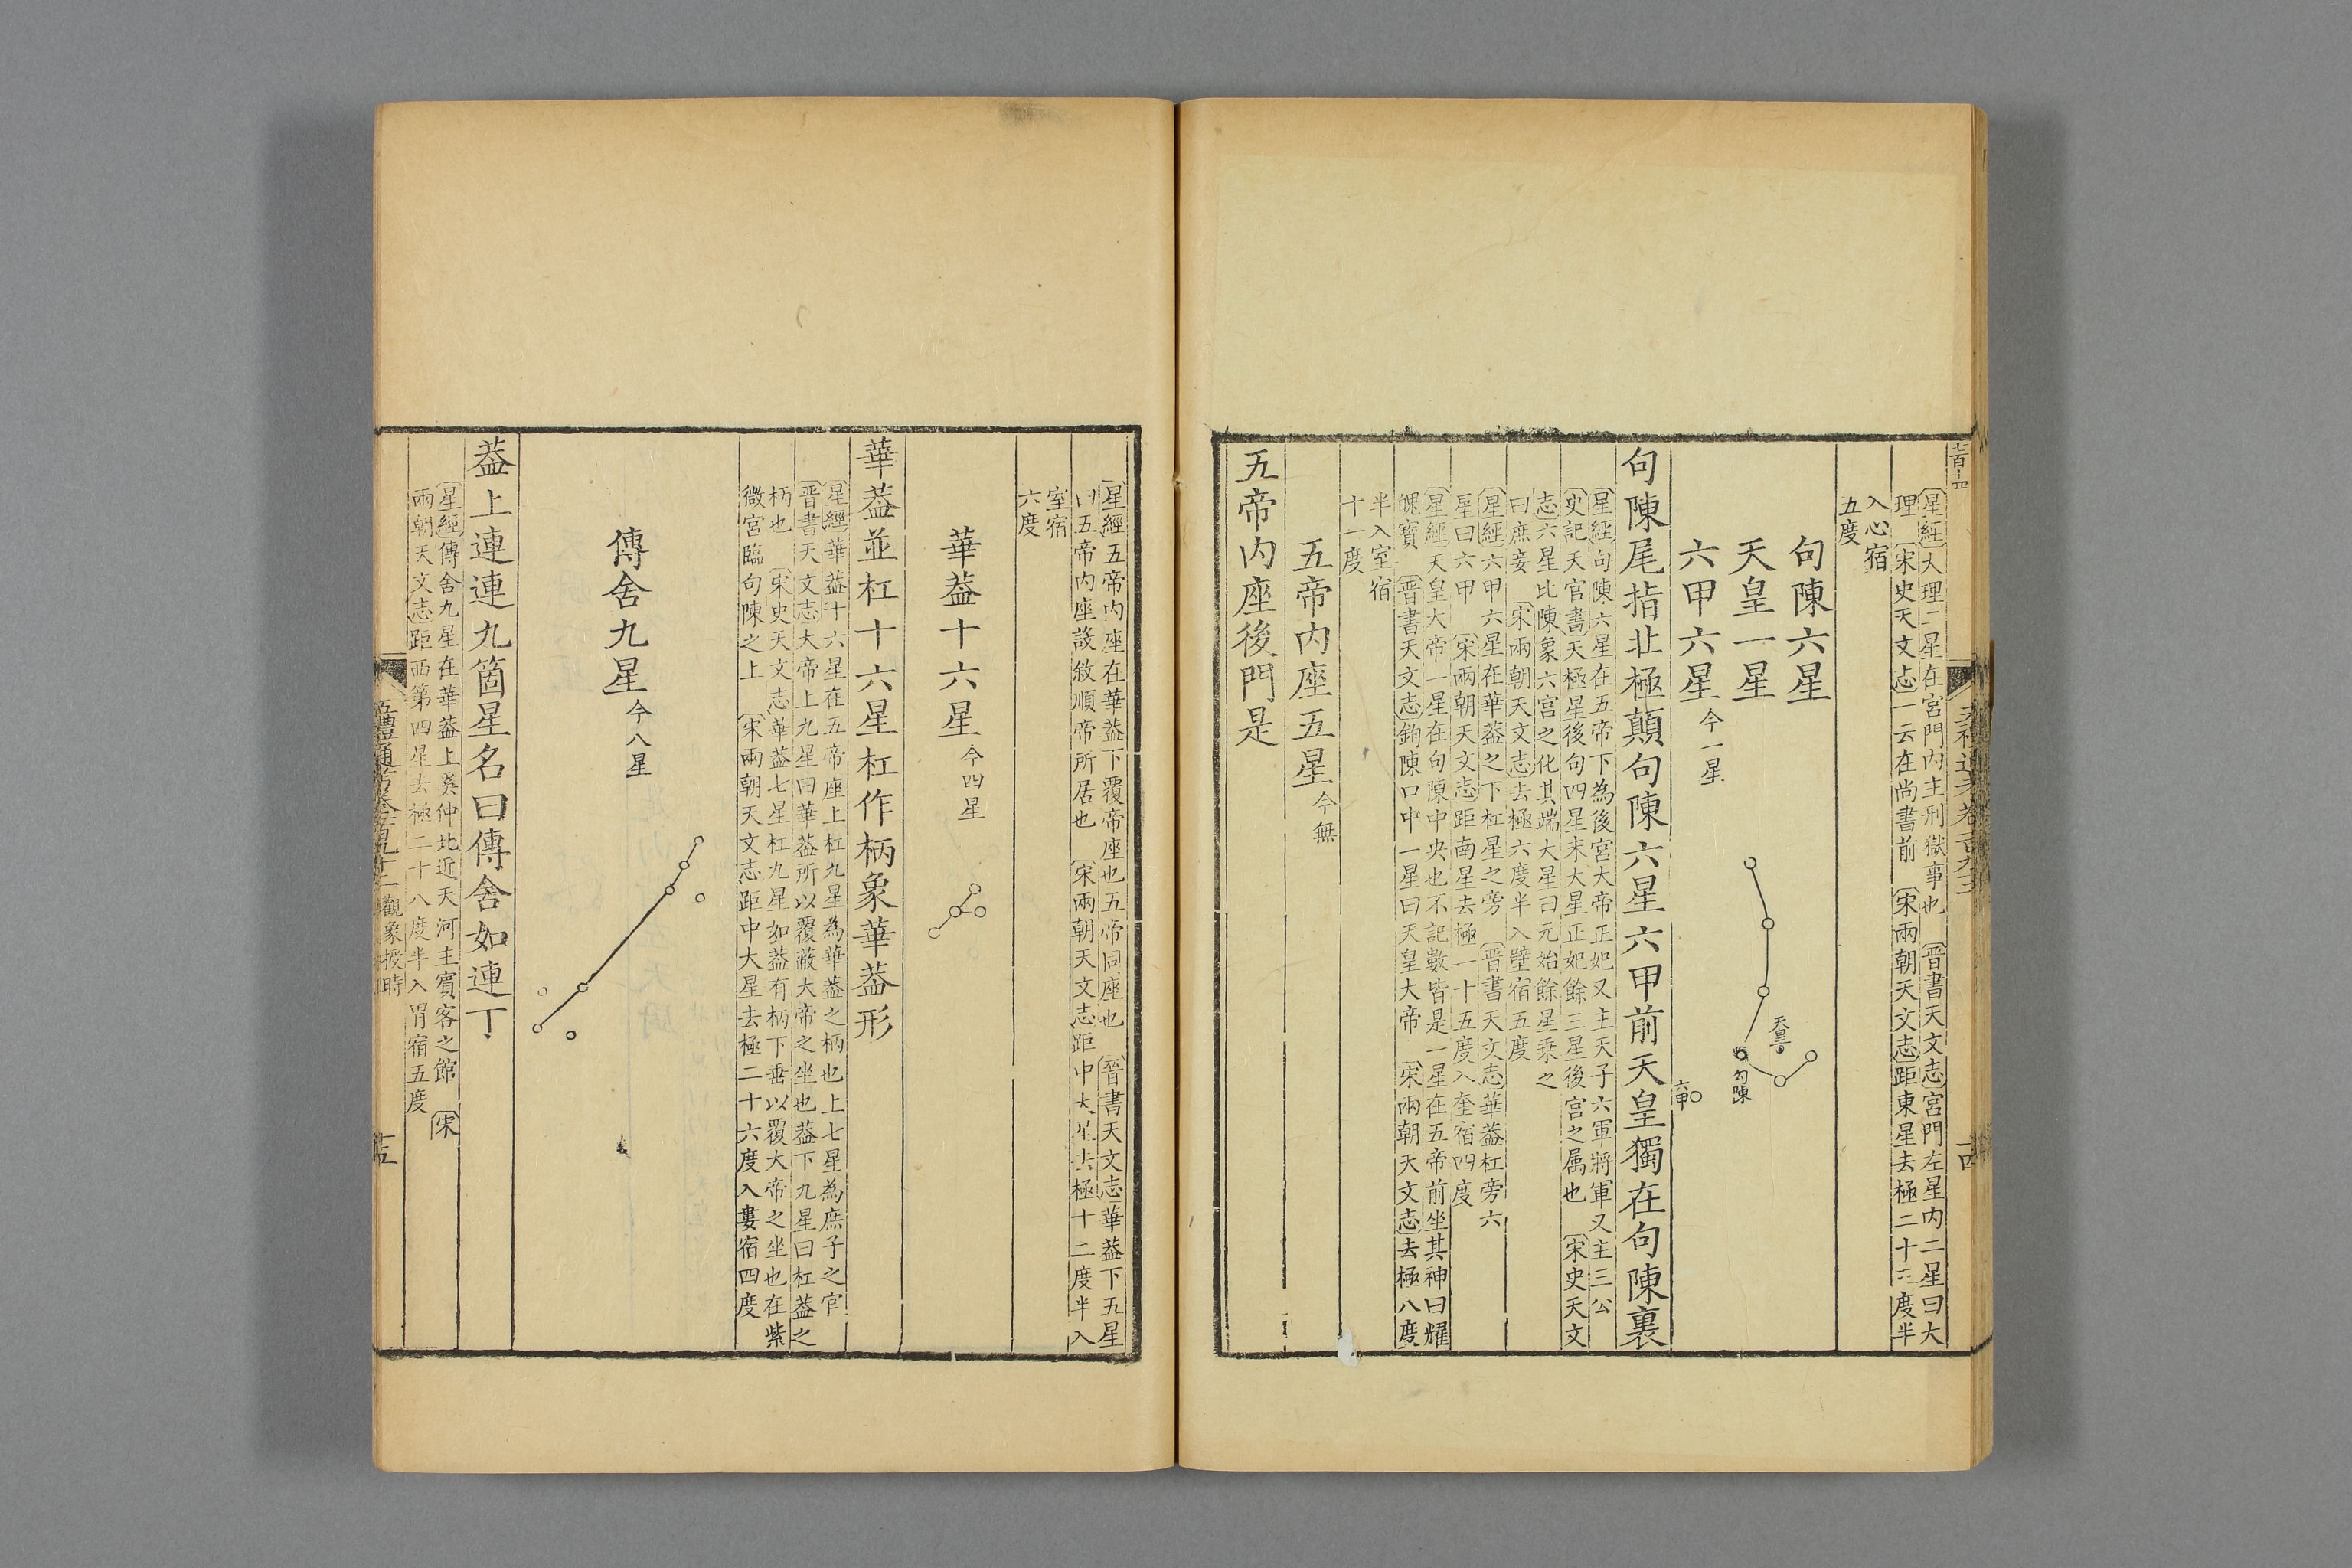 七百十四
星經大理二星在宮門内主刑獄事也　晉書天文志宮門左星内二星曰大
理　宋史天文志一云在尚書前　宋兩朝天文志距東星去極二十三度半
入心宿
五度
句陳六星
天皇一星
六甲六星今一星
天皇
勾陳
六甲
句陳尾指北極顛句陳六星六甲前天皇獨在句陳裏
星經句陳六星在五帝下為後宮大帝正妃又主天子六軍將軍又主三公
史記天官書天極星後句四星末大星正妃餘三星後宮之属也　宋史天文
志六星比陳象六宮之化其端大星曰元始餘星乘之
曰庶妾　宋兩朝天文志去極六度半入壁宿五度
星經六甲六星在華葢之下杠星之旁　晉書天文志華葢杠旁六
星曰六甲　宋兩朝天文志距南星去極一十五度入奎宿四度
星經天皇大帝一星在句陳中央也不記數皆是一星在五帝前坐其神曰耀
魄寶　晉書天文志鉤陳口中一星曰天皇大帝　宋兩朝天文志去極八度
半入室宿
十一度
五帝内座五星今無
五帝内座後門是
星經五帝内座在華葢下覆帝座也五帝同座也　晉書天文志華葢下五星
曰五帝内座設敘順帝所居也　宋兩朝天文志距中大星去極十二度半入
室宿
六度
華葢十六星今四星
華葢並杠十六星杠作柄象華葢形
星經華葢十六星在五帝座上杠九星為華葢之柄也上七星為庶子之官
晉書天文志大帝上九星曰華葢所以覆蔽大帝之坐也葢下九星曰杠葢之
柄也　宋史天文志華葢七星杠九星如葢有柄下垂以覆大帝之坐也在紫
微宮臨句陳之上　宋兩朝天文志距中大星去極二十六度入婁宿四度
傳舍九星今八星
葢上連連九箇星名曰傳舍如連丁
星經傳舍九星在華葢上奚仲北近天河主賓客之館　宋
兩朝天文志距西第四星去極二十八度半入胃宿五度
五禮通考卷一百九十二觀象授時
十五